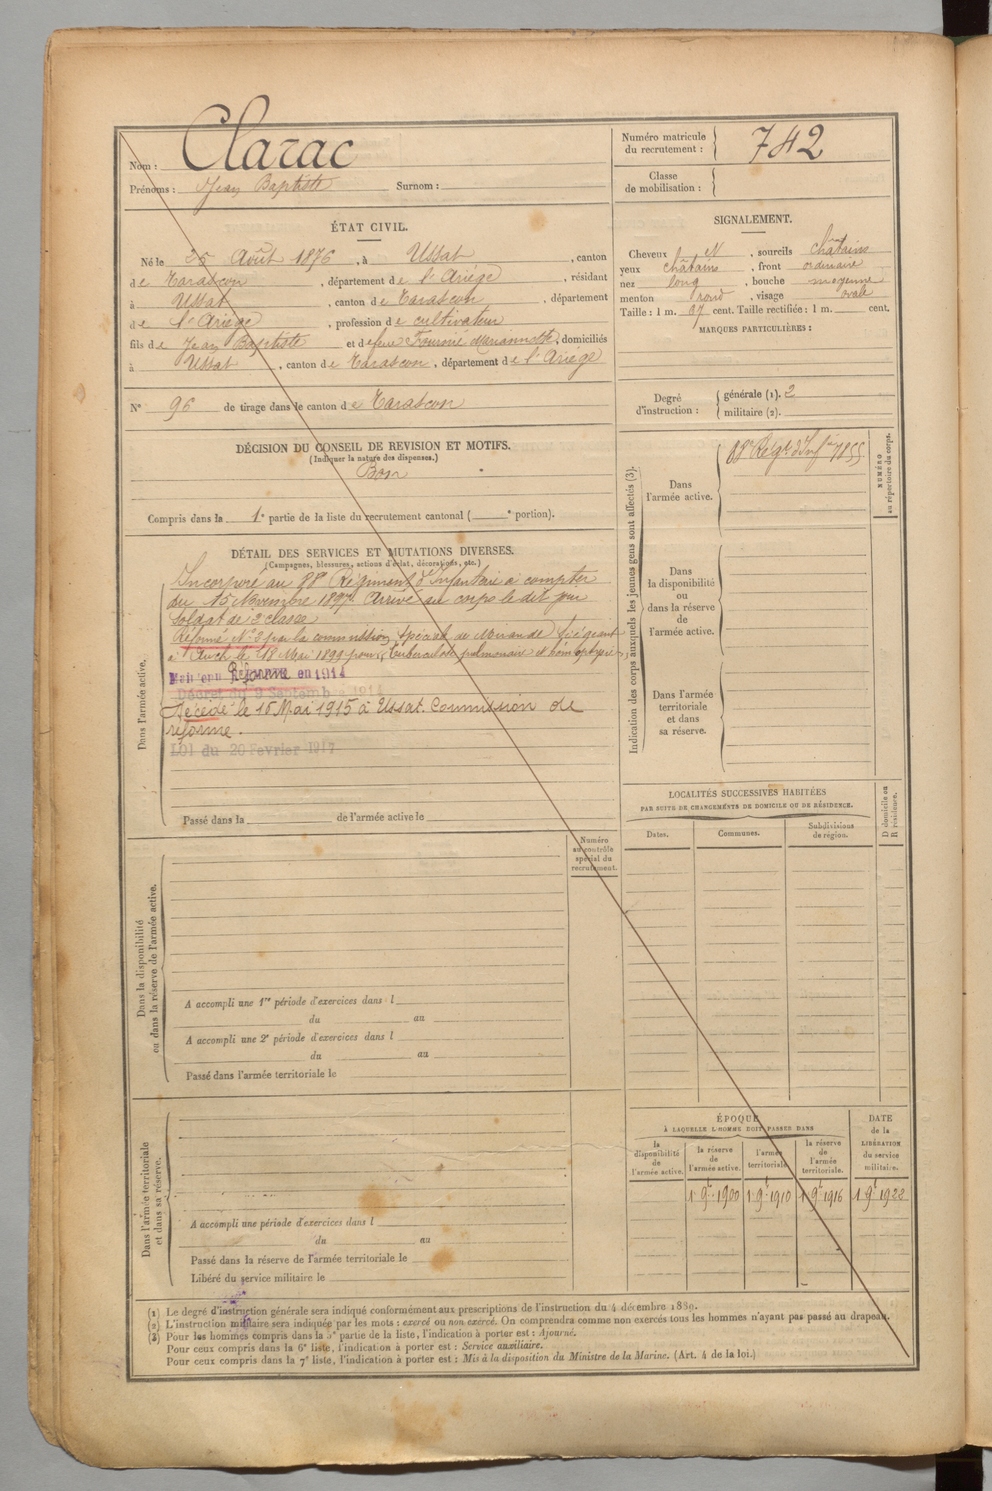 Nom : Clarac
Prénoms : Jean Baptiste Surnom :
Numéro matricule du recrutement : 742
Classe de mobilisation :
ÉTAT CIVIL.
Né le 25 Août 1876, à Ussat, canton
de Tarascon, département de l'Ariège, résidant
à Ussat, canton de Tarascon, département
de l'Ariège, profession de cultivateur
fils de Jean Baptiste et de feue Mariannette, domiciliés
à Ussat, canton de Tarascon, département de l'Ariège
N° 96 de tirage dans le canton de Tarascon
SIGNALEMENT.
Cheveux et N, sourcils châtains
yeux châtains, front ordinaire
nez long, bouche moyenne
menton rond, visage ovale
Taille : 1 m. 67 cent. Taille rectifiée : 1 m. cent.
MARQUES PARTICULIÈRES :
Degré d'instruction : générale (1). 2
militaire (2).
DÉCISION DU CONSEIL DE REVISION ET MOTIFS.
(Indiquer la nature des dispenses.)
Bon
Compris dans la 1e partie de la liste du recrutement cantonal ( e portion).
DÉTAIL DES SERVICES ET MUTATIONS DIVERSES.
(Campagnes, blessures, actions d'éclat, décorations, etc.)
Dans l'armée active.
Incorporé au 88e Régiment d'Infanterie à compter
du 15 Novembre 1897. Arrivé au corps le dit jour
Soldat de 2e classe
Réformé N°2 par la commission spéciale de Mirande siégeant
à Auch le 18 Mai 1899 pour tuberculose pulmonaire et hémoptysies
Maintenu Réformé en 1914
Décret du 9 Septembre 1914
Décédé le 16 Mai 1915 à Ussat. Commission de
réforme.
LOI du 20 Fevrier 1917
Passé dans la de l'armée active le
Indication des corps auxquels les jeunes gens sont affectés (3).
Dans l'armée active.
88e Régt d'Infie 7855
NUMÉRO au répertoire du corps.
Dans la disponibilité ou dans la réserve de l'armée active.
Dans l'armée territoriale et dans sa réserve.
LOCALITÉS SUCCESSIVES HABITÉES
PAR SUITE DE CHANGEMENTS DE DOMICILE OU DE RÉSIDENCE.
Dates. Communes. Subdivisions de région.
D domicile ou R résidence.
Numéro au contrôle spécial du recrutement.
Dans la disponibilité ou dans la réserve de l'armée active.
A accompli une 1re période d'exercices dans l
du au
A accompli une 2e période d'exercices dans l
du au
Passé dans l'armée territoriale le
Dans l'armée territoriale et dans sa réserve.
A accompli une période d'exercices dans l
du au
Passé dans la réserve de l'armée territoriale le
Libéré du service militaire le
ÉPOQUE
À LAQUELLE L'HOMME DOIT PASSER DANS
la disponibilité de l'armée active.
la réserve de l'armée active.
l'armée territoriale.
la réserve de l'armée territoriale.
DATE de la LIBÉRATION du service militaire.
1 9e 1900 1 9e 1910 1 9e 1916 1 9e 1922
(1) Le degré d'instruction générale sera indiqué conformément aux prescriptions de l'instruction du 4 décembre 1889.
(2) L'instruction militaire sera indiquée par les mots : exercé ou non exercé. On comprendra comme non exercés tous les hommes n'ayant pas passé au drapeau.
(3) Pour les hommes compris dans la 5e partie de la liste, l'indication à porter est : Ajourné.
Pour ceux compris dans la 6e liste, l'indication à porter est : Service auxiliaire.
Pour ceux compris dans la 7e liste, l'indication à porter est : Mis à la disposition du Ministre de la Marine. (Art. 4 de la loi.)